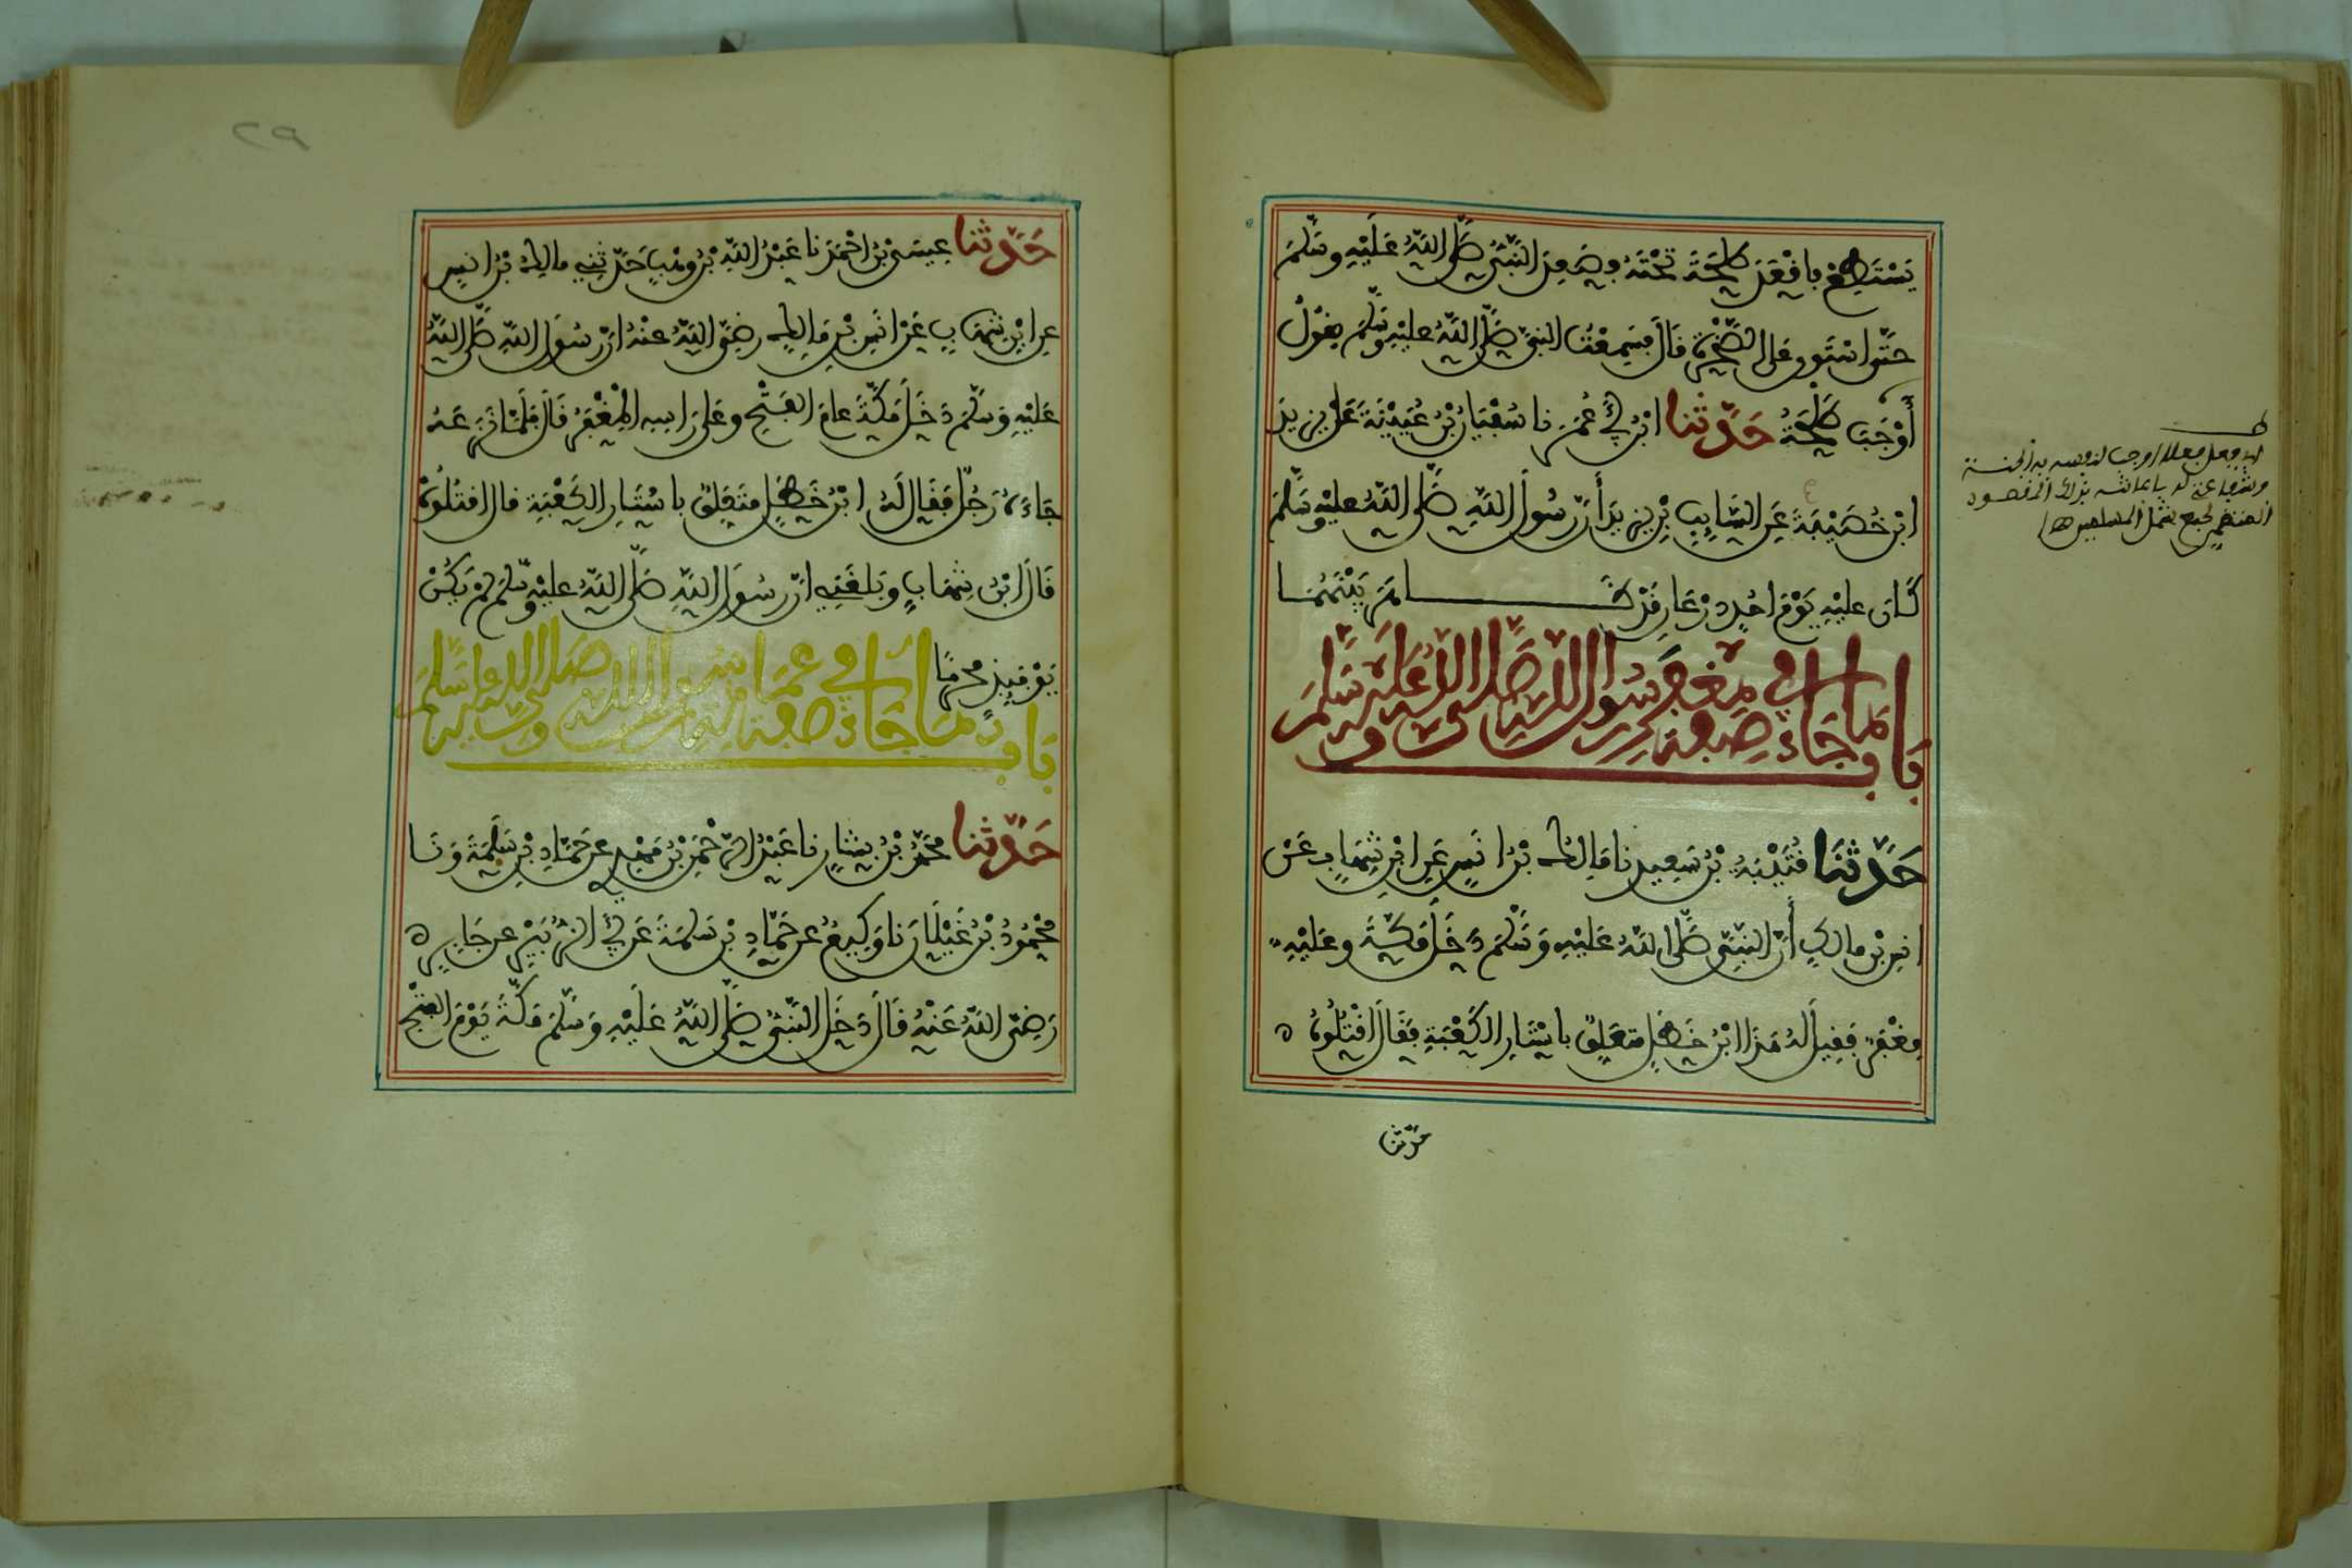 يَسْتَطِعْ فَأَقْعَدَ طَلْحَةَ تَحْتَهُ وَصَعِدَ النَّبِيُّ صَلَّى اللَّهُ عَلَيْهِ وَسَلَّمَ
حَتَّى اسْتَوَى عَلَى الصَّخْرَةِ قَالَ فَسَمِعْتُ النَّبِيَّ صَلَّى اللَّهُ عَلَيْهِ وَسَلَّمَ يَقُولُ
أَوْجَبَ طَلْحَةُ حَدَّثَنَا ابْنُ أَبِي عُمَرَ نا سُفْيَانُ بْنُ عُيَيْنَةَ عَنْ يَزِيدَ
ابْنِ خُصَيْفَةَ عَنِ السَّائِبِ بْنِ يَزِيدَ أَنَّ رَسُولَ اللَّهِ صَلَّى اللَّهُ عَلَيْهِ وَسَلَّمَ
كَانَ عَلَيْهِ يَوْمَ أُحُدٍ دِرْعَانِ قَدْ ظَاهَرَ بَيْنَهُمَا
بَابُ مَا جَاءَ فِي صِفَةِ مِغْفَرِ رَسُولِ اللَّهِ صَلَّى اللَّهُ عَلَيْهِ وَسَلَّمَ
حَدَّثَنَا قُتَيْبَةُ بْنُ سَعِيدٍ نا مَالِكُ بْنُ أَنَسٍ عَنِ ابْنِ شِهَابٍ عَنْ
أَنَسِ بْنِ مَالِكٍ أَنَّ النَّبِيَّ صَلَّى اللَّهُ عَلَيْهِ وَسَلَّمَ دَخَلَ مَكَّةَ وَعَلَيْهِ
مِغْفَرٌ فَقِيلَ لَهُ هَذَا ابْنُ خَطَلٍ مُتَعَلِّقٌ بِأَسْتَارِ الْكَعْبَةِ فَقَالَ اقْتُلُوهُ
حدثنا
٢٩
حَدَّثَنَا عِيسَى بْنُ أَحْمَدَ نا عَبْدُ اللَّهِ بْنُ وَهْبٍ حَدَّثَنِي مَالِكُ بْنُ أَنَسٍ
عَنِ ابْنِ شِهَابٍ عَنْ أَنَسِ بْنِ مَالِكٍ رَضِيَ اللَّهُ عَنْهُ أَنَّ رَسُولَ اللَّهِ صَلَّى اللَّهُ
عَلَيْهِ وَسَلَّمَ دَخَلَ مَكَّةَ عَامَ الْفَتْحِ وَعَلَى رَأْسِهِ الْمِغْفَرُ قَالَ فَلَمَّا نَزَعَهُ
جَاءَهُ رَجُلٌ فَقَالَ لَهُ ابْنُ خَطَلٍ مُتَعَلِّقٌ بِأَسْتَارِ الْكَعْبَةِ قَالَ اقْتُلُوهُ
قَالَ ابْنُ شِهَابٍ وَبَلَغَنِي أَنَّ رَسُولَ اللَّهِ صَلَّى اللَّهُ عَلَيْهِ وَسَلَّمَ لَمْ يَكُنْ
يَوْمَئِذٍ مُحْرِمًا
بَابُ مَا جَاءَ فِي صِفَةِ عِمَامَةِ رَسُولِ اللَّهِ صَلَّى اللَّهُ عَلَيْهِ وَسَلَّمَ
حَدَّثَنَا مُحَمَّدُ بْنُ بَشَّارٍ نا عَبْدُ الرَّحْمَنِ بْنُ مَهْدِي عَنْ حَمَّادِ بْنِ سَلَمَةَ وَنَا
مَحْمُودُ بْنُ غَيْلَانَ نَا وَكِيعٌ عَنْ حَمَّادِ بْنِ سَلَمَةَ عَنْ أَبِي الزُّبَيْرِ عَنْ جَابِرٍ
رَضِيَ اللَّهُ عَنْهُ قَالَ دَخَلَ النَّبِيُّ صَلَّى اللَّهُ عَلَيْهِ وَسَلَّمَ مَكَّةَ يَوْمَ الْفَتْحِ